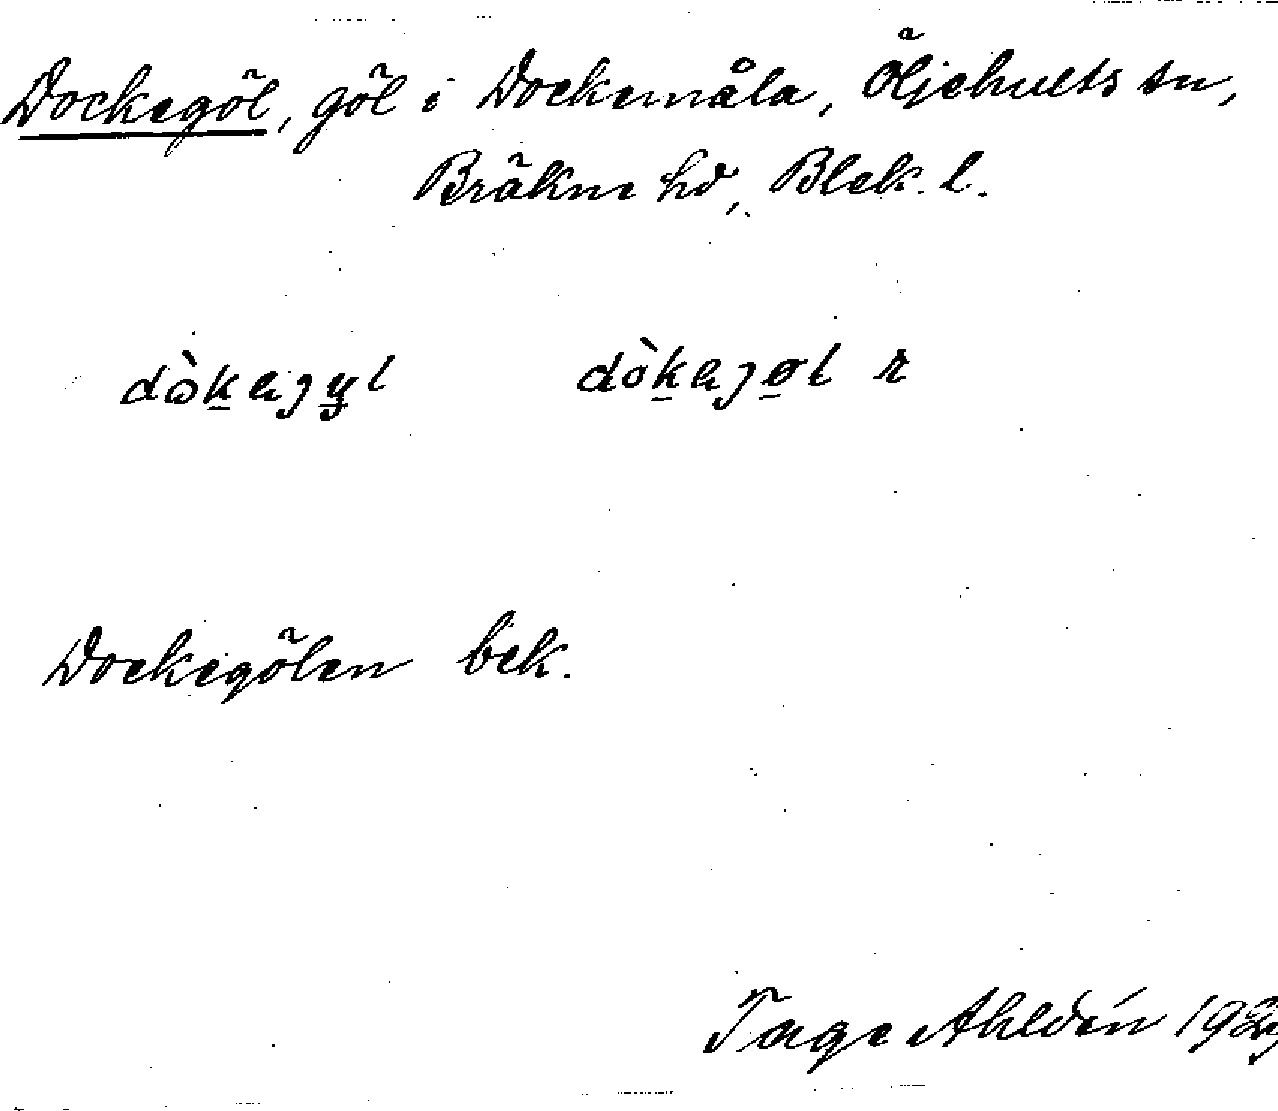 Dockegöl, göl i Dockemåla, Öljehults sn,
Bräkne hd, Blek. l.
Dockegölen bek.
Tage Ahldén 1929